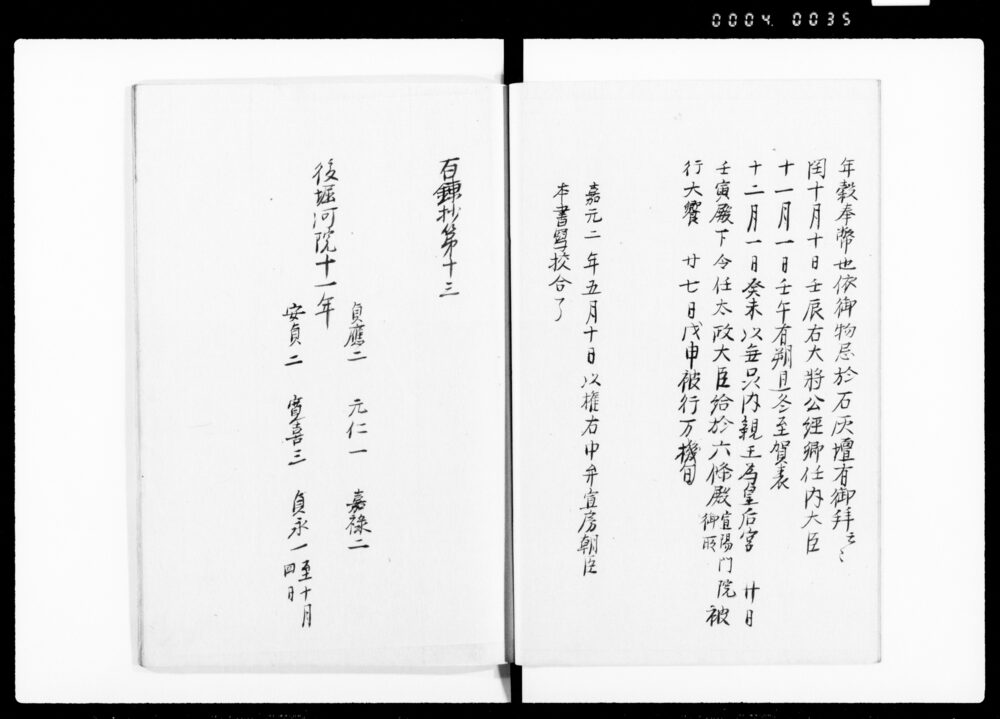 0004 0035
年穀奉幣也依御物忌於石灰壇有御拝云〻
閏十月十日壬辰右大將公經卿任内大臣
十一月一日壬午有朔旦冬至賀表
十二月一日癸未以無品内親王為皇后宮　廿日
壬寅殿下令任太政大臣給於六條殿宣陽門院御所被
行大饗　廿七日戊申被行万機旬
嘉元二年五月十日以権右中弁宣房朝臣
本書挍合了
百錬抄第十三
後堀河院十一年
貞應二　元仁一　嘉禄二
安貞二　寛喜三　貞永一至十月四日